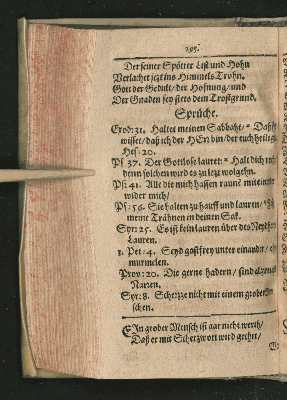 195.
Der seiner Spötter List und Hohn
Verlachet jezt ins Himmels Trohn.
Gott der Gedult/ der Hofnung/ und
Der Gnaden sey stets dein Trostgrund.
Sprüche.
Exod: 31. Haltet meinen Sabbaht/* Daß ihr
wisset/ daß ich der HErr bin/ der euch heiliget
Hes: 20.
Ps: 37. Der Gottlose lauret: * Halt dich
denn solchen wird es zulezt wolgehn.
Ps: 41. Alle die mich hassen raunē miteinander
wider mich/
Ps: 56. Sie halten zu hauff und lauren/
meine Trähnen in deinen Sak.
Syr: 25. Es ist kein lauren über des
Lauren.
1. Pet: 4. Seyd gastfrey unter einander/ ohn
murmelen.
Prov: 20. Die gerne hadern/ sind
Narren.
Syr: 8. Scherze nicht mit einem groben
schen.
EIn grober Mensch ist gar nicht wehrt/
Daß er mit Scherzwort wird geehrt/